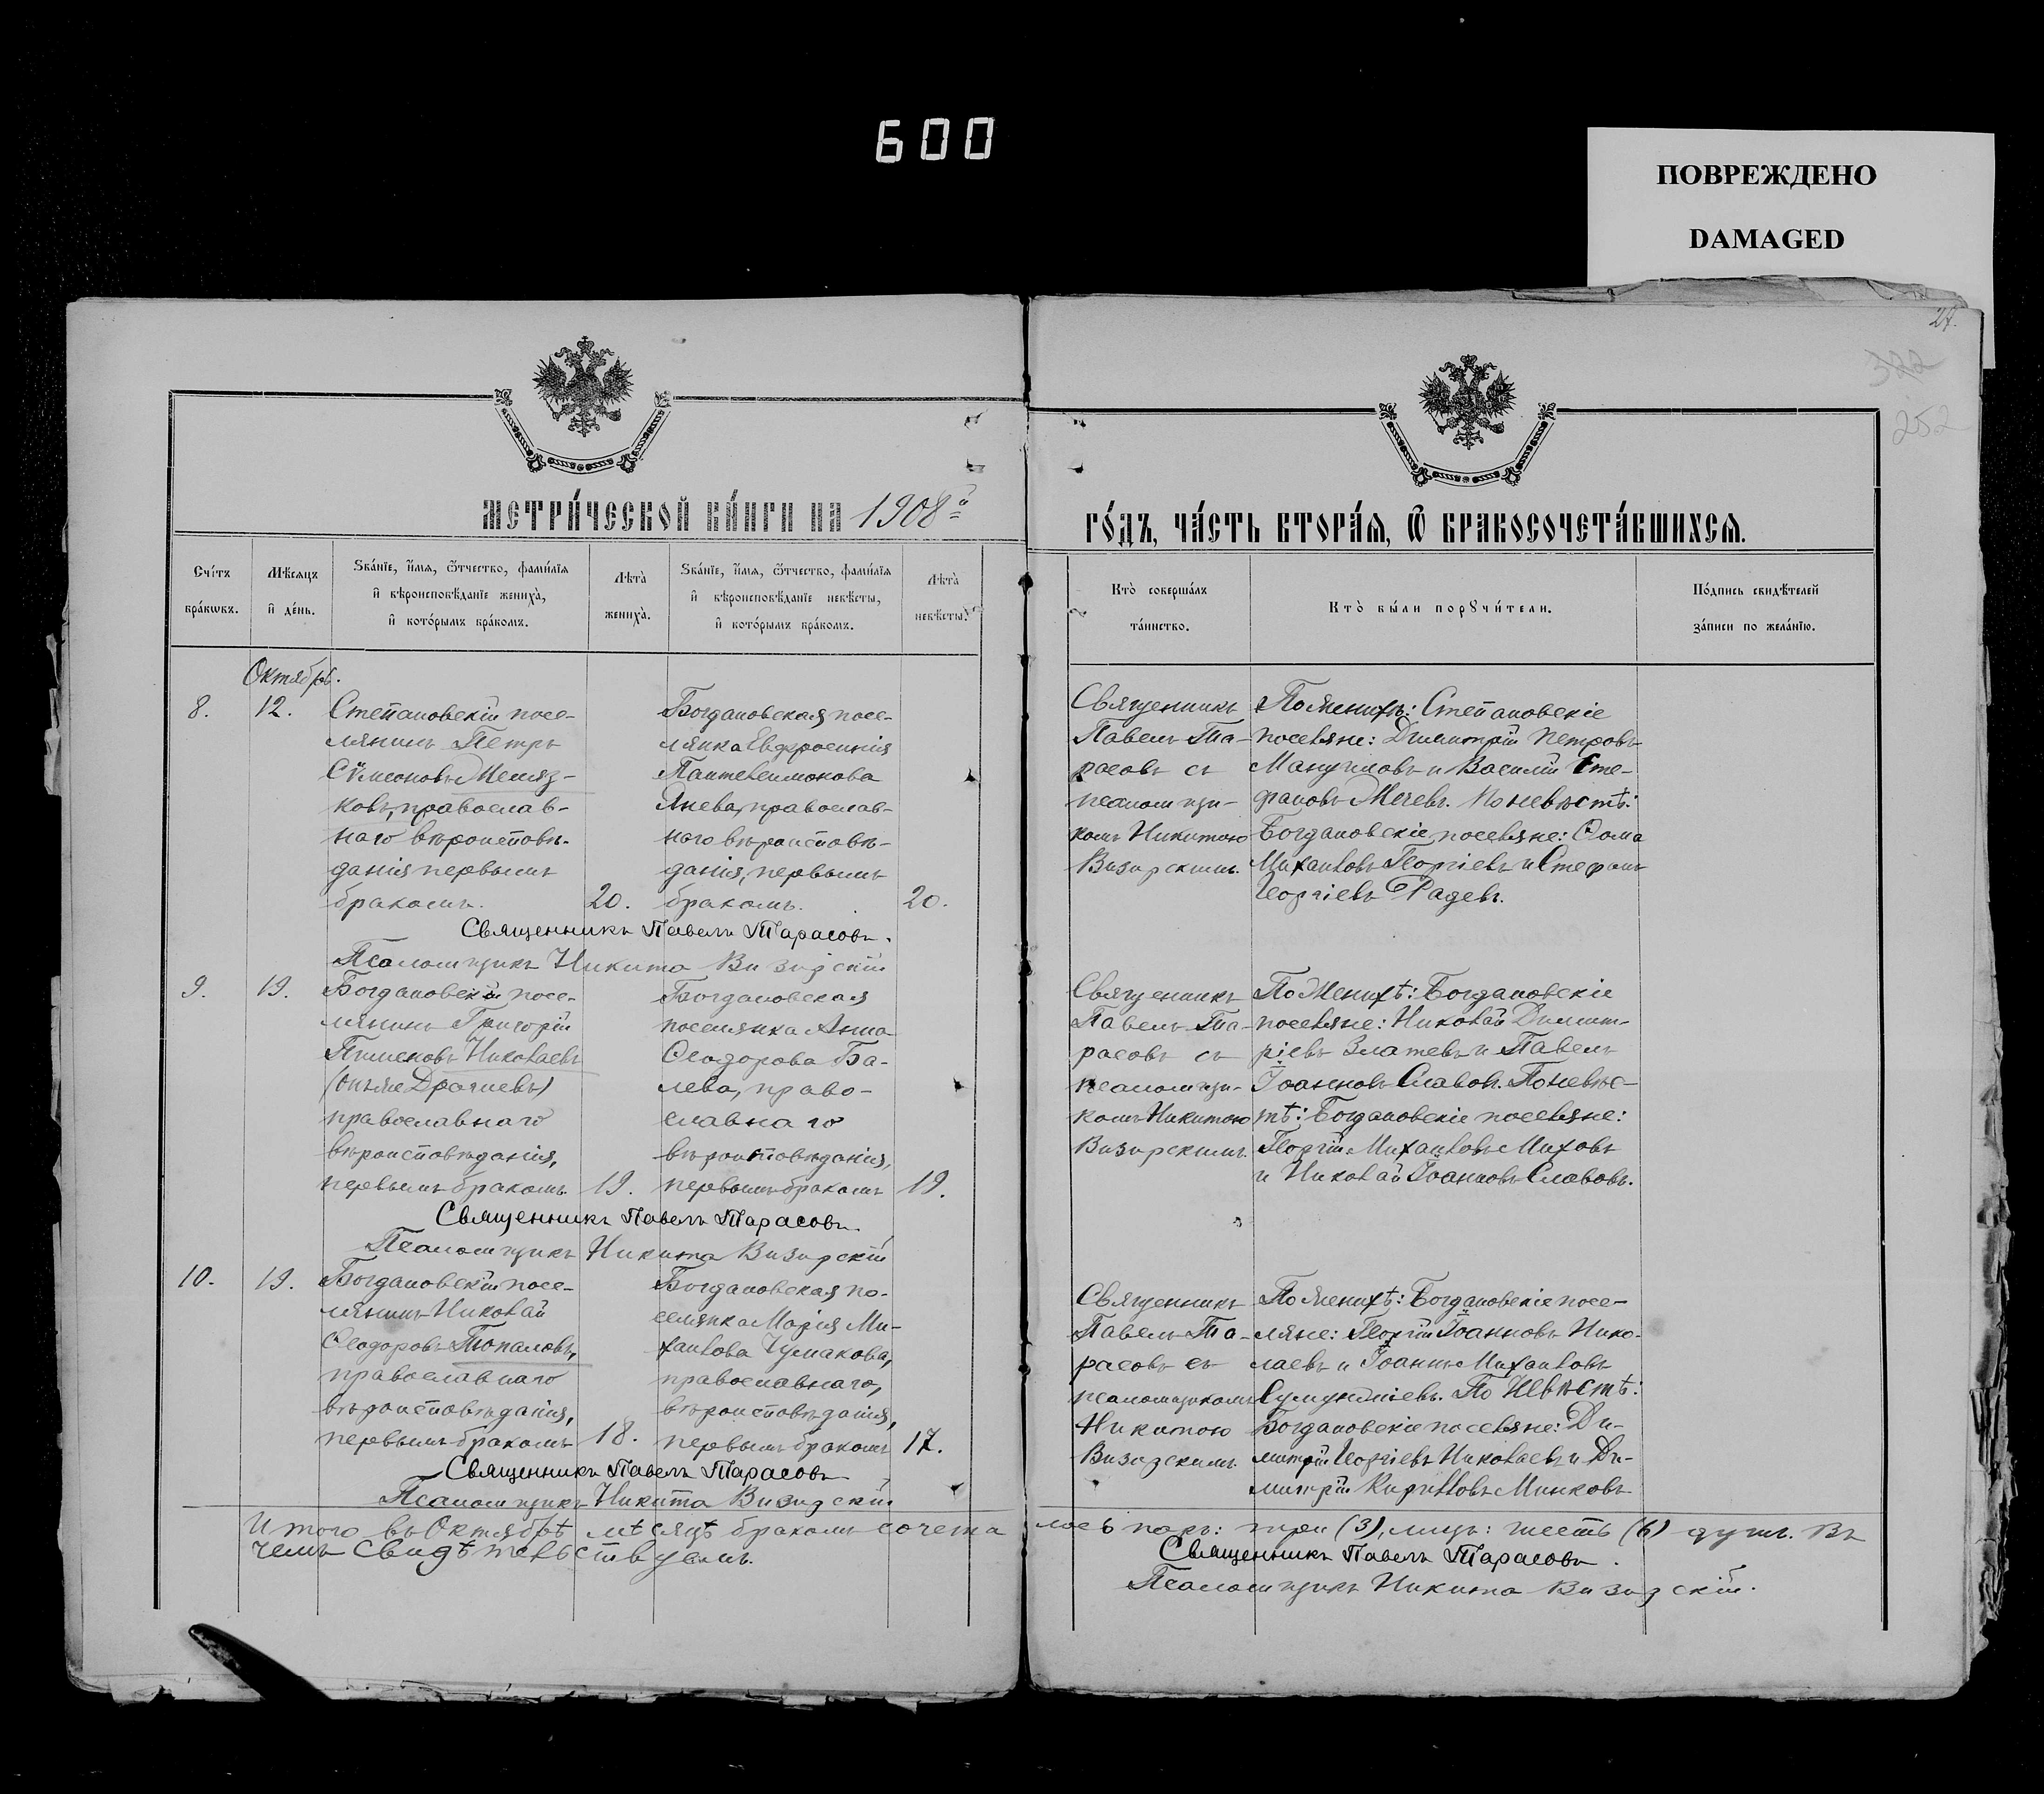 600
ПОВРЕЖДЕНО
DAMAGED
27.
322
252
МЕТРИ́ЧЕСКОЙ КНИ́ГИ НА 1908й
ГО́ДЪ, ЧА́СТЬ ВТОРА́Я, Ѿ БРАКОСОЧЕТА́ВШИХСЯ.
Сче́тъ
бра́кѡвъ.
Мѣ́сяцъ
и҆ де́нь.
Зва́нїе, и҆́мя, ѻ҆́тчество, фами́лїя
и҆ вѣроисповѣ́данїе жениха̀,
и҆ кото́рымъ бра́комъ.
Лѣта̀
жениха̀.
Зва́нїе, и҆́мя, ѻ҆́тчество, фами́лїя
и҆ вѣроисповѣ́данїе невѣ́сты,
и҆ кото́рымъ бра́комъ.
Лѣта̀
невѣ́сты.
Кто̀ соверша́лъ
та́инство.
Кто̀ бы́ли порꙋчи́тели.
По́дпись свидѣ́телей
за́писи по жела́нїю.
Октябрь.
8.
12.
Степановскій посе-
лянинъ Петръ
Сѵмеоновъ
ковъ, православ-
наго вѣроисповѣ-
данія первымъ
бракомъ.
20.
Богдановская посе-
лянка Евфросинія
Пантелеимонова
Янева, православ-
наго вѣроисповѣ-
данія, первымъ
бракомъ.
20.
Священникъ
Павелъ Та-
расовъ съ
псаломщи-
комъ Никитою
Визирскимъ.
По женихѣ: Степановскіе
поселяне: Димитрій Петровъ
Мануиловъ и Василій Сте-
фановъ Мечевъ. По невѣстѣ:
Богдановскіе поселяне: Ѳома
Михаиловъ Георгіевъ и Стефанъ
Георгіевъ Радевъ.
Священникъ Павелъ Тарасовъ.
Псаломщикъ Никита Визирскій
9.
19.
Богдановскій посе-
лянинъ Григорій
Пименовъ Николаевъ
(онъ же Драгневъ)
православнаго
вѣроисповѣданія,
первымъ бракомъ.
19.
Богдановская
поселянка Анна
Ѳеодорова Ба-
лева, право-
славнаго
вѣроисповѣданія,
первымъ бракомъ
19.
Священникъ
Павелъ Та-
расовъ съ
псаломщи-
комъ Никитою
Визирскимъ.
По женихѣ: Богдановскіе
поселяне: Николай Димит-
ріевъ Златевъ и Павелъ
Іоанновъ Славовъ. По невѣс-
тѣ: Богдановскіе поселяне:
Георгій Михаиловъ Миховъ
и Николай Іоанновъ Славовъ.
Священникъ Павелъ Тарасовъ
Псаломщикъ Никита Визирскій
10.
19.
Богдановскій посе-
лянинъ Николай
Ѳеодоровъ Топаловъ,
православнаго
вѣроисповѣданія,
первымъ бракомъ
18.
Богдановская по-
селянка Марія Ми-
хаилова Чумакова,
православнаго,
вѣроисповѣданія,
первымъ бракомъ
17.
Священникъ
Павелъ Та-
расовъ съ
псаломщикомъ
Никитою
Визирскимъ
По женихѣ: Богдановскіе посе-
ляне: Георгій Іоанновъ Нико-
лаевъ и Іоаннъ Михаиловъ
По невѣстѣ:
Богдановскіе поселяне: Ди-
митрій Георгіевъ Николаевъ и Ди-
митрій Кирилловъ Минковъ
Священникъ Павелъ Тарасовъ
Псаломщикъ Никита Визирскій
Итого въ Октябрѣ мѣсяцѣ бракомъ сочета лось паръ: три (3), лицъ: шесть (6) душъ. Въ
чемъ свидѣтельствуемъ.
Священникъ Павелъ Тарасовъ.
Псаломщикъ Никита Визирскій.